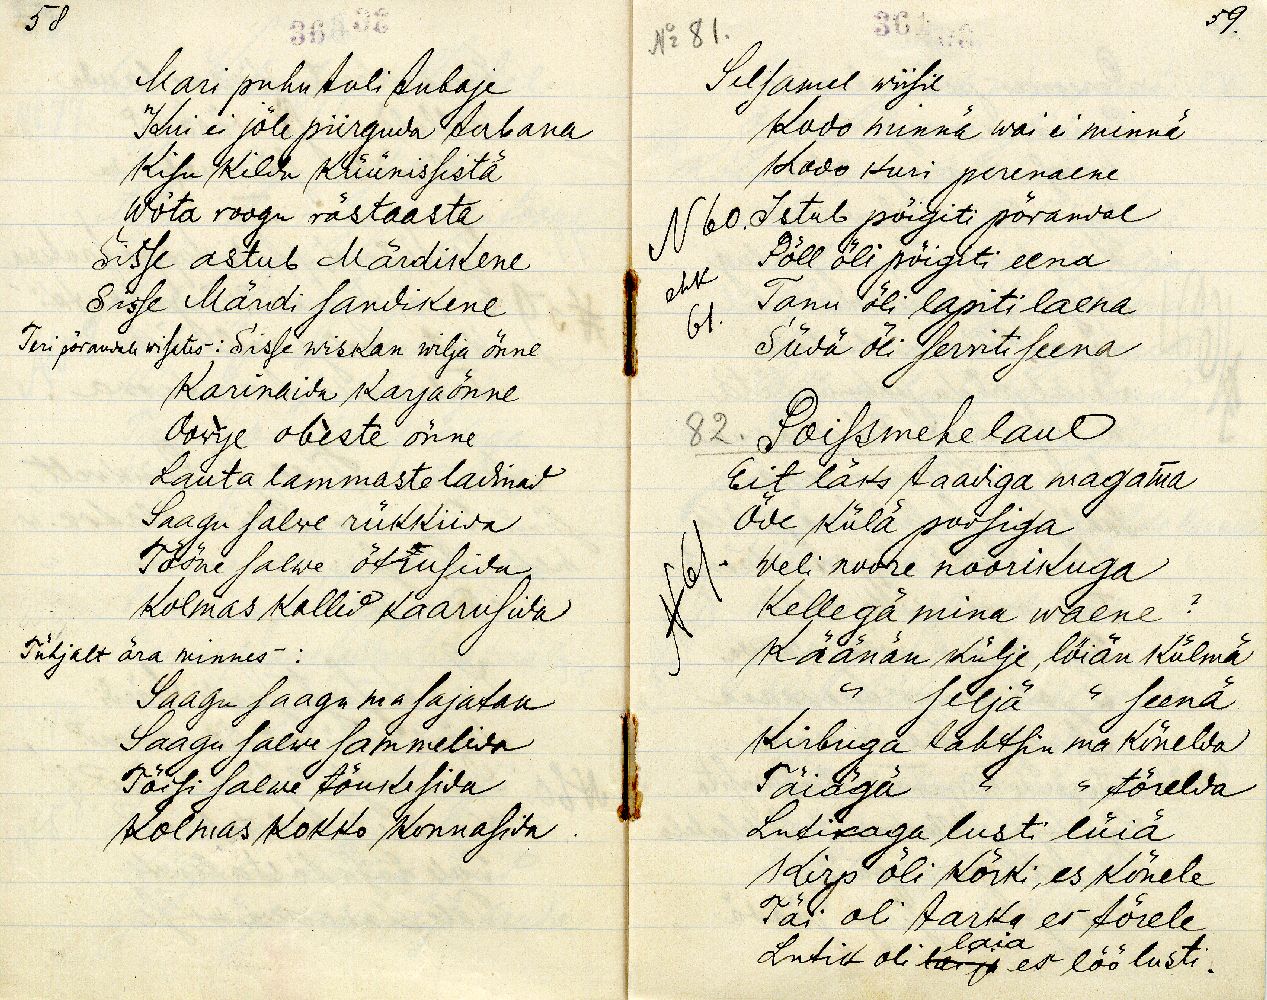 58
Mari puhu tuli tubaje
Kui ei jõle piirguda tubana
Kisu kildu küünissistä
Wõta roogu rästaasta
Sisse astub Märdikene
Sisse Märdi sandikene
Teri põrandale wisates: Sisse wiskan wilja õnne
Karinaida karja õnne
Oowye obeste õnne
Lauta lammaste ladinad
Saagu salwe rükkiida
Tõõne salwe õttusida
Kolmas kallid kaarusida
Tühjalt ära minnes:
Saagu saagu ma sajatan
Saagu salwe sammelida
Tõisi salwe tõukesida
Kolmas kokko konnasida.
59.
№ 81.
Selsamel wiisil
Kodo minnä woi ei minnä
Kodo kuri perenaene
N 60. Istub põigiti põrandal
Põll õli põigiti eena
ehk
61.
Tanu õli lapiti laena
Südä õli serviti seena
82. Poissmehe laul
Eit läks taadiga magama
Õde külä poosiga
N 61.
Weli noore noorikuga
Kellegä mina waene?
Käänän külje, löiän külmä
" seljä " seenä
Kirbuga tahtsin ma kõnelda
Täiägä " " tõrelda
Lutikaga lusti lüiä
Kirp õli kõrki, es kõnele
Täi oli tarka es tõrele
Lutik oli laia es löö lusti.